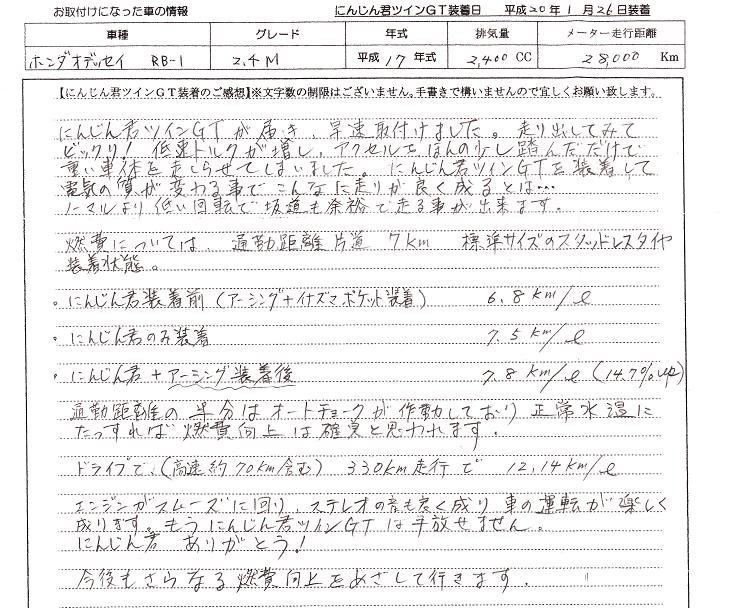 お取付けになった車の情報 にんじん君ツインGT装着日 平成20年1月26日装着
車種 グレード 年式 排気量 メーター走行距離
ホンダオデッセイ RB-1 2.4M 平成17年式 2,400CC 28,000Km
【にんじん君ツインGT装着のご感想】※文字数の制限はございません。手書きで構いませんので宜しくお願い致します。
にんじん君ツインGTが届き、早速取付けました。走り出してみて
ビックリ! 低速トルクが増し、アクセルをほんの少し踏んだだけで
重い車体を走らせてしまいました。にんじん君ツインGTを装着して
電気の質が変わる事でこんなに走りが良く成るとは…
ノーマルより低い回転で坂道も余裕で走る事が出来ます。
燃費については 通勤距離片道 7km 標準サイズのスタッドレスタイヤ
装着状態。
・にんじん君装着前(アーシング+イナズマポケット装着) 6.8km/ℓ
・にんじん君のみ装着 7.5km/ℓ
・にんじん君+アーシング装着後 7.8km/ℓ(14.7%up)
通勤距離の半分はオートチョークが作動しており正常水温に
たっすれば燃費向上は確実と思われます。
ドライブで、(高速約70km含む) 330km走行で 12.14km/ℓ
エンジンがスムーズに回り、ステレオの音も良く成り車の運転が楽しく
成ります。もうにんじん君ツインGTは手放せません。
にんじん君 ありがとう!
今後もさらなる燃費向上をめざして行きます。